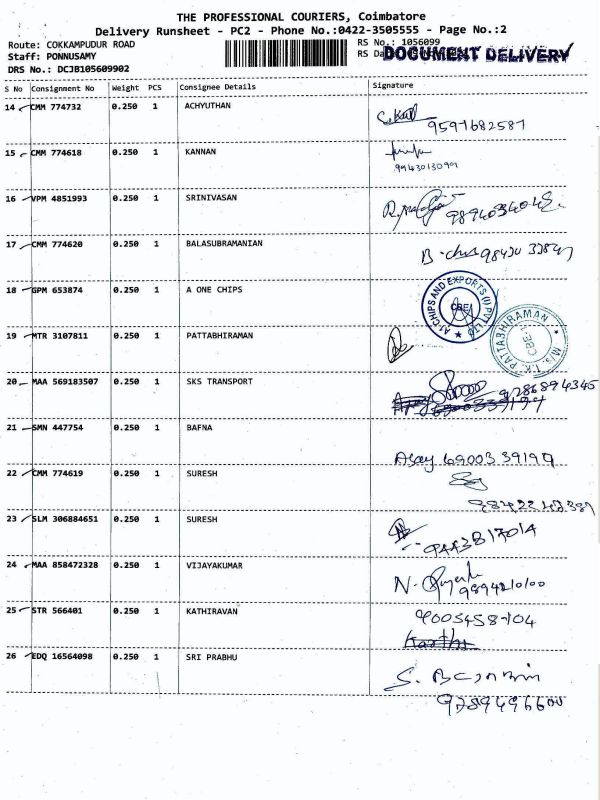 THE PROFESSIONAL COURIERS, Coimbatore
Delivery Runsheet - PC2 - Phone No.:0422-3505555 - Page No.:2
Route: COKKAMPUDUR ROAD
RS No.: 1056099
Staff: PONNUSAMY
RS Da
DOCUMENT DELIVERY
DRS No.: DCJB105609902
S No Consignment No Weight PCS Consignee Details Signature
14 CMM 774732 0.250 1 ACHYUTHAN
9597682587
15 CMM 774618 0.250 1 KANNAN
9943013099
16 VPM 4851993 0.250 1 SRINIVASAN
17 CMM 774620 0.250 1 BALASUBRAMANIAN
18 GPM 653874 0.250 1 A ONE CHIPS
A1 CHIPS AND EXPORTS (I) PVT LTD
CBE
19 MTR 3107811 0.250 1 PATTABHIRAMAN
M/s. T.K. PATTABHIRAMAN
20 MAA 569183507 0.250 1 SKS TRANSPORT
9286894345
21 SMN 447754 0.250 1 BAFNA
69003 39197
22 CMM 774619 0.250 1 SURESH
23 SLM 306884651 0.250 1 SURESH
9443817014
24 MAA 858472328 0.250 1 VIJAYAKUMAR
9894210100
25 STR 566401 0.250 1 KATHIRAVAN
26 EDQ 16564098 0.250 1 SRI PRABHU
9789496600